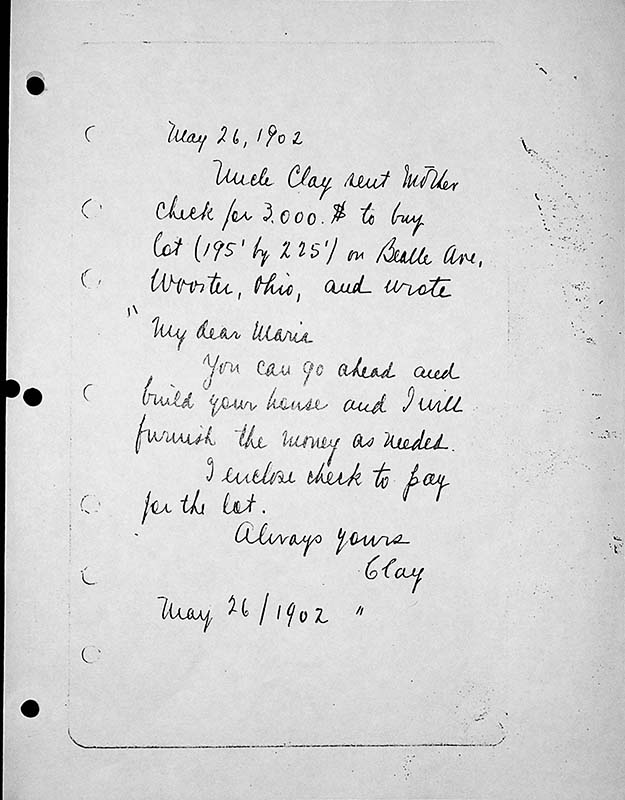 May 26, 1902
Uncle Clay sent Mother
check for 3.000.$ to buy
lot (195' by 225') on Bealle Ave,
Wooster, Ohio, and wrote
"My dear Maria
You can go ahead and
build your house and I will
furnish the money as needed.
I enclose check to pay
for the lot.
Always yours
Clay
May 26/1902 "